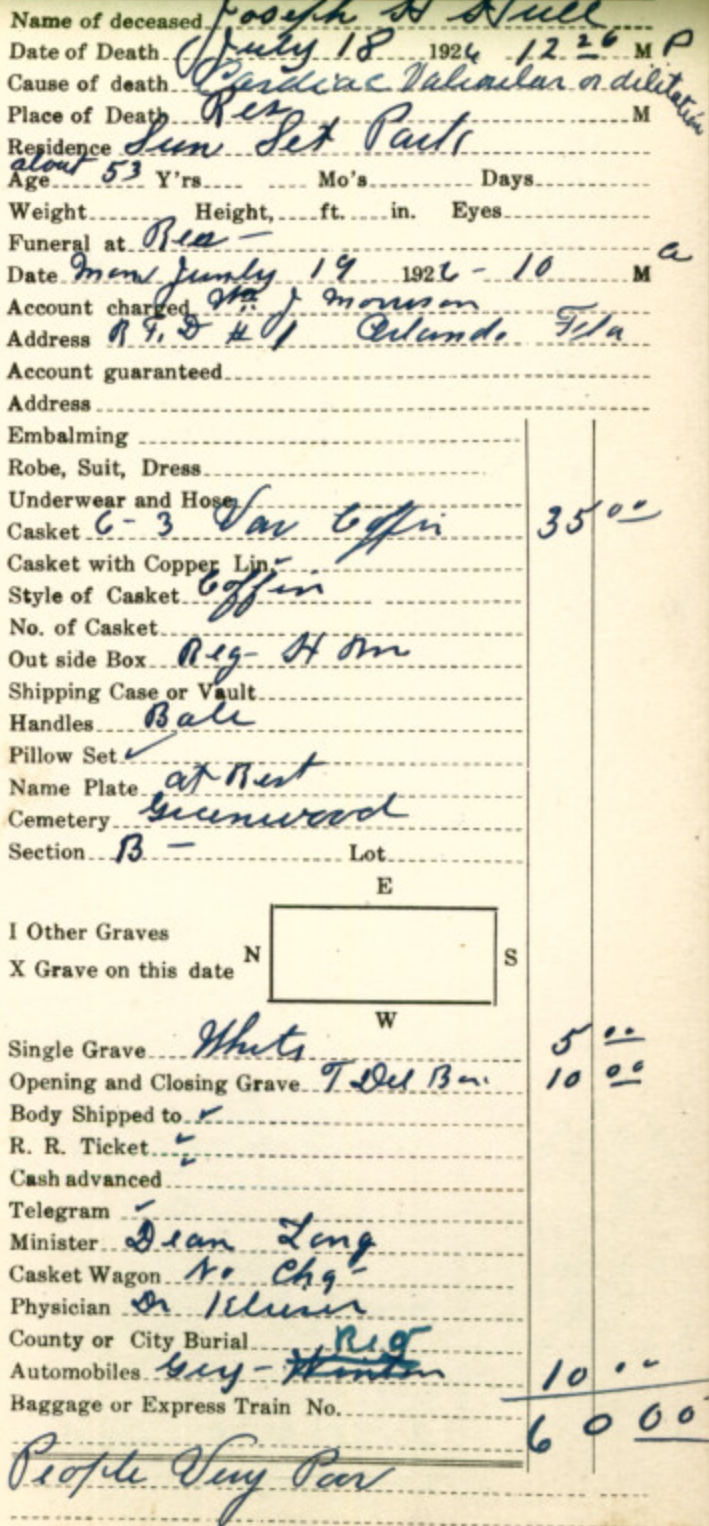 Name of deceased Joseph H Hull
Date of Death July 18 1926 12 26 M P
Cause of death Cardiac Valvular or dilitation
Place of Death Res M
Residence Sun Set Park
Age about 53 Y'rs Mo's Days
Weight Height, ft. in. Eyes
Funeral at Res -
Date Mon 19 1926 - 10 M a
Account charged J Morrison
Address R F. D # 1 Orlando Fla
Account guaranteed
Address
Embalming
Robe, Suit, Dress
Underwear and Hose
Casket 6-3 Var Coffin 35 00
Casket with Copper Lin.
Style of Casket Coffin
No. of Casket
Out side Box Reg-
Shipping Case or Vault
Handles Bale
Pillow Set ✓
Name Plate at Rest
Cemetery Greenwood
Section B - Lot
E
I Other Graves
N S
X Grave on this date
W
Single Grave White 5 00
Opening and Closing Grave 10 00
Body Shipped to ✓
R. R. Ticket ✓
Cash advanced ✓
Telegram ✓
Minister Dean Long
Casket Wagon No Chg-
Physician Dr
County or City Burial
Automobiles 10 00
Baggage or Express Train No.
60 00
People Very Poor